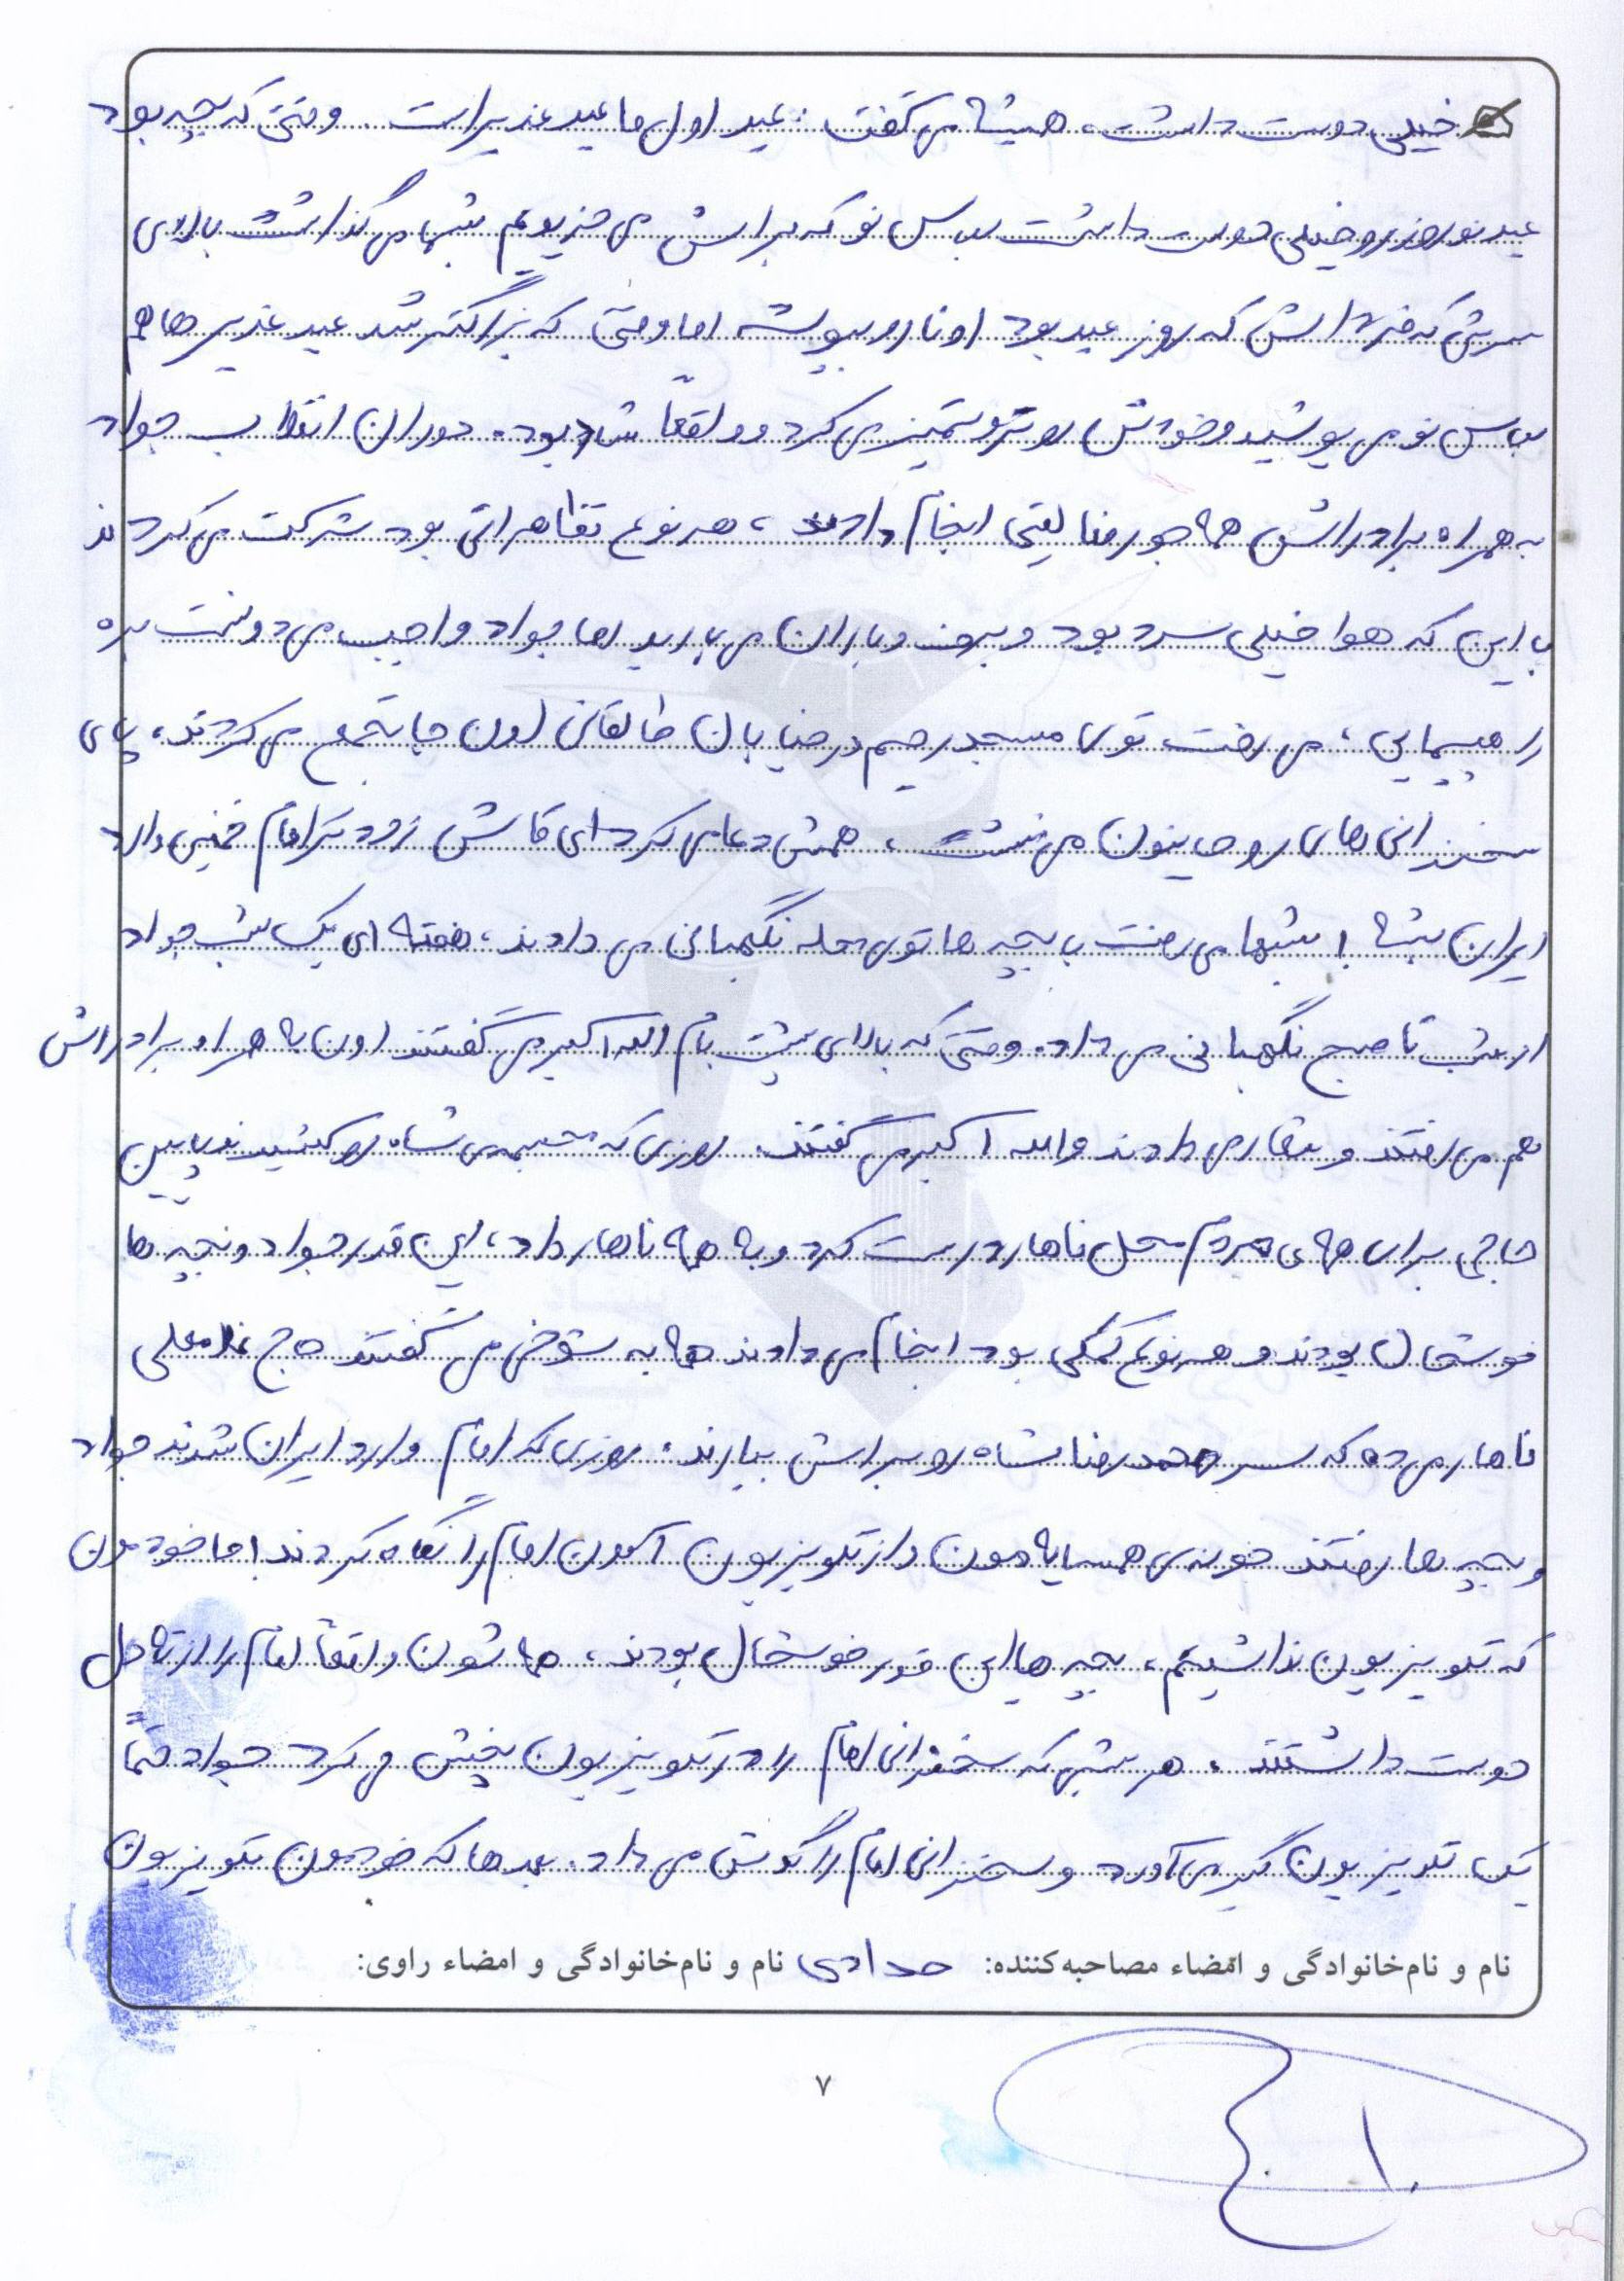 خیلی دوست داشت، همیشه می گفت: عید اول ما عید غدیر است. وقتی که بچه بود
عید نوروز رو خیلی دوست داشت لباس نو که براش می خریدیم شبها می گذاشت بالای
سرش که فرداش که روز عید بود اونا رو بپوشه اما وقتی که بزرگتر شد عید غدیر ها هم
لباس نو می پوشید و خودش رو تر و تمیز می کرد و واقعاً شاد بود. دوران انقلاب جواد
به همراه برادراش همه جور فعالیتی انجام دادند، هر نوع تظاهراتی بود شرکت می کردند
با این که هوا خیلی سرد بود و برف و باران می بارید اما جواد واجب می دونست بره
راهپیمایی، می رفت توی مسجد رحیم در خیابان طالقانی اون جا تجمع می کردند، پای
سخنرانی های روحانیون می نشست، همش دعا می کرد ای کاش زودتر امام خمینی وارد
ایران بشه! شبها می رفت با بچه ها توی محله نگهبانی می دادند، هفته ای یک شب جواد
از شب تا صبح نگهبانی می داد. وقتی که بالای پشت بام الله اکبر می گفتند اون با همراه برادراش
هم می رفتند و شعار می دادند و الله اکبر می گفتند. روزی که مجسمه ی شاه رو کشیدند پایین
حاجی برای همه ی مردم محل ناهار درست کرد و به همه ناهار داد، این قدر جواد و بچه ها
خوشحال بودند و هر نوع کمکی بود انجام می دادند همه به شوخی می گفتند حاج غلامعلی
ناهار می ده که سر محمدرضا شاه رو براش بیارند. روزی که امام وارد ایران شدند جواد
و بچه ها رفتند خونه ی همسایه مون و از تلویزیون آمدن امام را نگاه کردند اما خودمون
که تلویزیون نداشتیم، بچه ها این قدر خوشحال بودند، همه شون واقعاً امام را از ته دل
دوست داشتند. هر شبی که سخنرانی امام را در تلویزیون پخش می کرد جواد حتماً
یک تلویزیون گیر می آورد و سخنرانی امام را گوش می داد. بعدها که خودمون تلویزیون
نام و نام‌خانوادگی و امضاء مصاحبه‌کننده: حدادی نام و نام‌خانوادگی و امضاء راوی:
۷